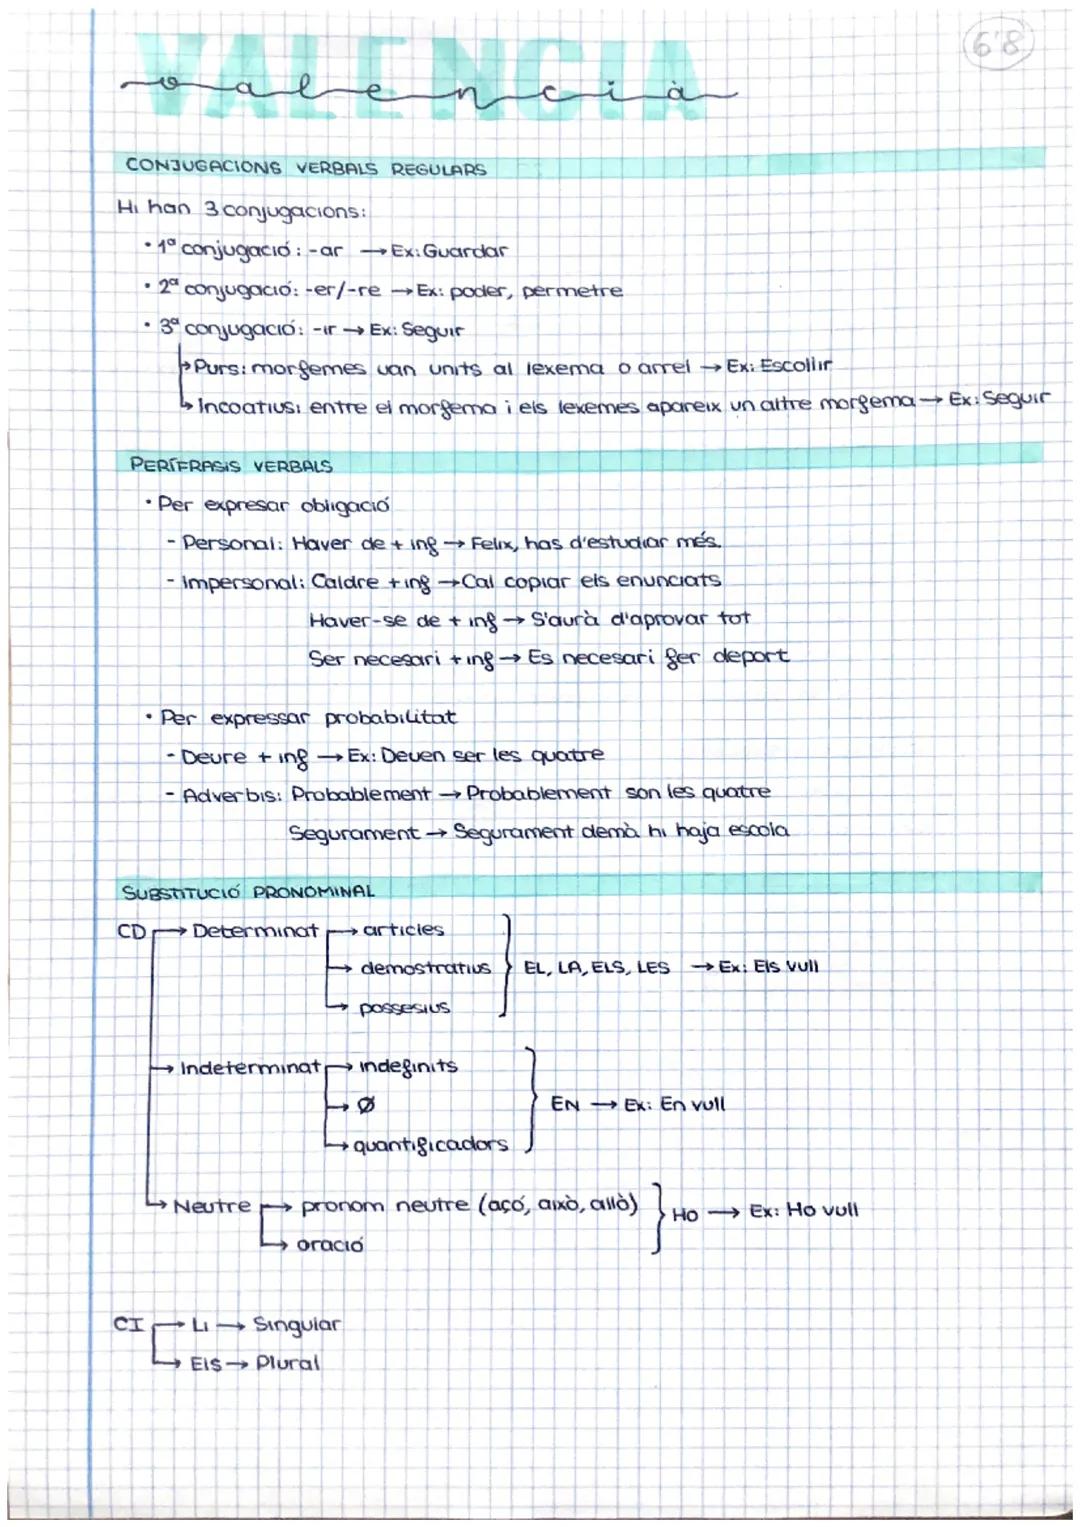 VALENCIA
valencià
6'8
CONJUGACIONS VERBALS REGULARS
Hi han 3 conjugacions:
• 1ª conjugació: -ar → Ex: Guardar
• 2ª conjugació: -er/-re → Ex: poder, permetre
• 3ª conjugació: -ir → Ex: Seguir
↳ Purs: morfemes van units al lexema o arrel → Ex: Escollir
↳ Incoatius: entre el morfema i els lexemes apareix un altre morfema → Ex: Seguir
PERÍFRASIS VERBALS
• Per expresar obligació
- Personal: Haver de + inf → Felix, has d'estudiar més.
- Impersonal: Caldre + inf → Cal copiar els enunciats
Haver-se de + inf → S'aurà d'aprovar tot
Ser necesari + inf → Es necesari fer deport
• Per expressar probabilitat
- Deure + inf → Ex: Deuen ser les quatre
- Adverbis: Probablement → Probablement son les quatre
Segurament → Segurament demà hi haja escola
SUBSTITUCIÓ PRONOMINAL
CD → Determinat → articles
→ demostratius } EL, LA, ELS, LES → Ex: Els vull
→ possesius
→ Indeterminat → indefinits
→ Ø } EN → Ex: En vull
→ quantificadors
→ Neutre → pronom neutre (açó, això, allò) } HO → Ex: Ho vull
→ oració
CI → Li → Singular
→ Els → Plural